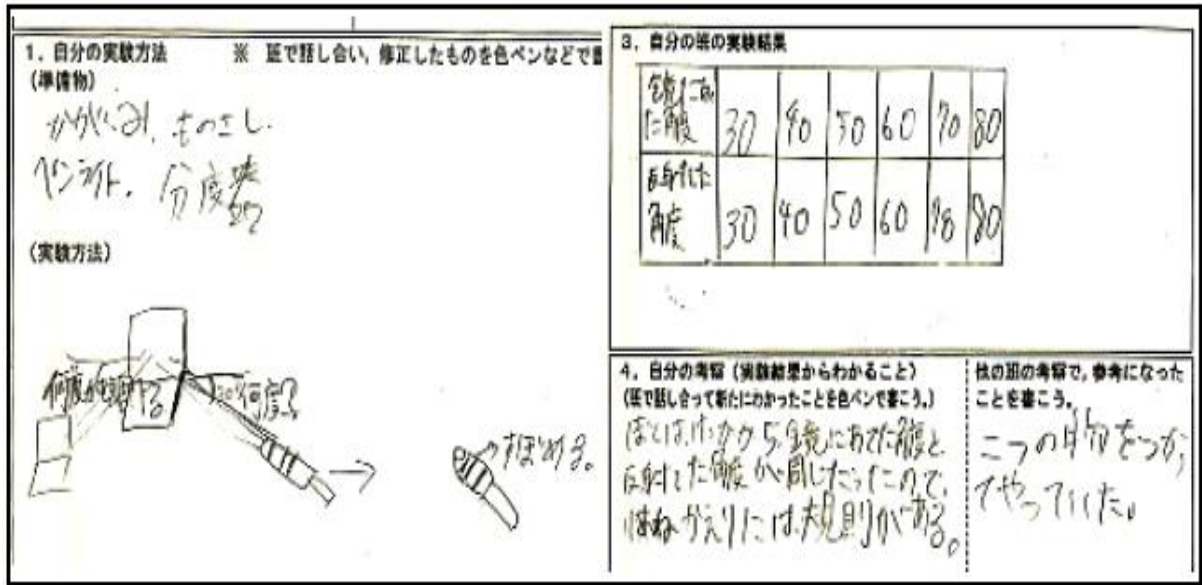 1. 自分の実験方法 ※ 班で話し合い,修正したものを色ペンなどで
(準備物)
かがみ, ものさし.
ペンライト. 分度器
(実験方法)
何度か調べる
何度?
すぼめる。
3. 自分の班の実験結果
た角度 30 40 50 60 70 80
反射した
角度 30 40 50 60 70 80
4. 自分の考察(実験結果からわかること)
(班で話し合って新たにわかったことを色ペンで書こう。)
ぼくは,
鏡にあてた角度と
反射した角度が同じだったので,
はねかえりには規則がある。
他の班の考察で,参考になった
ことを書こう。
二つの
をつかっ
てやっていた。